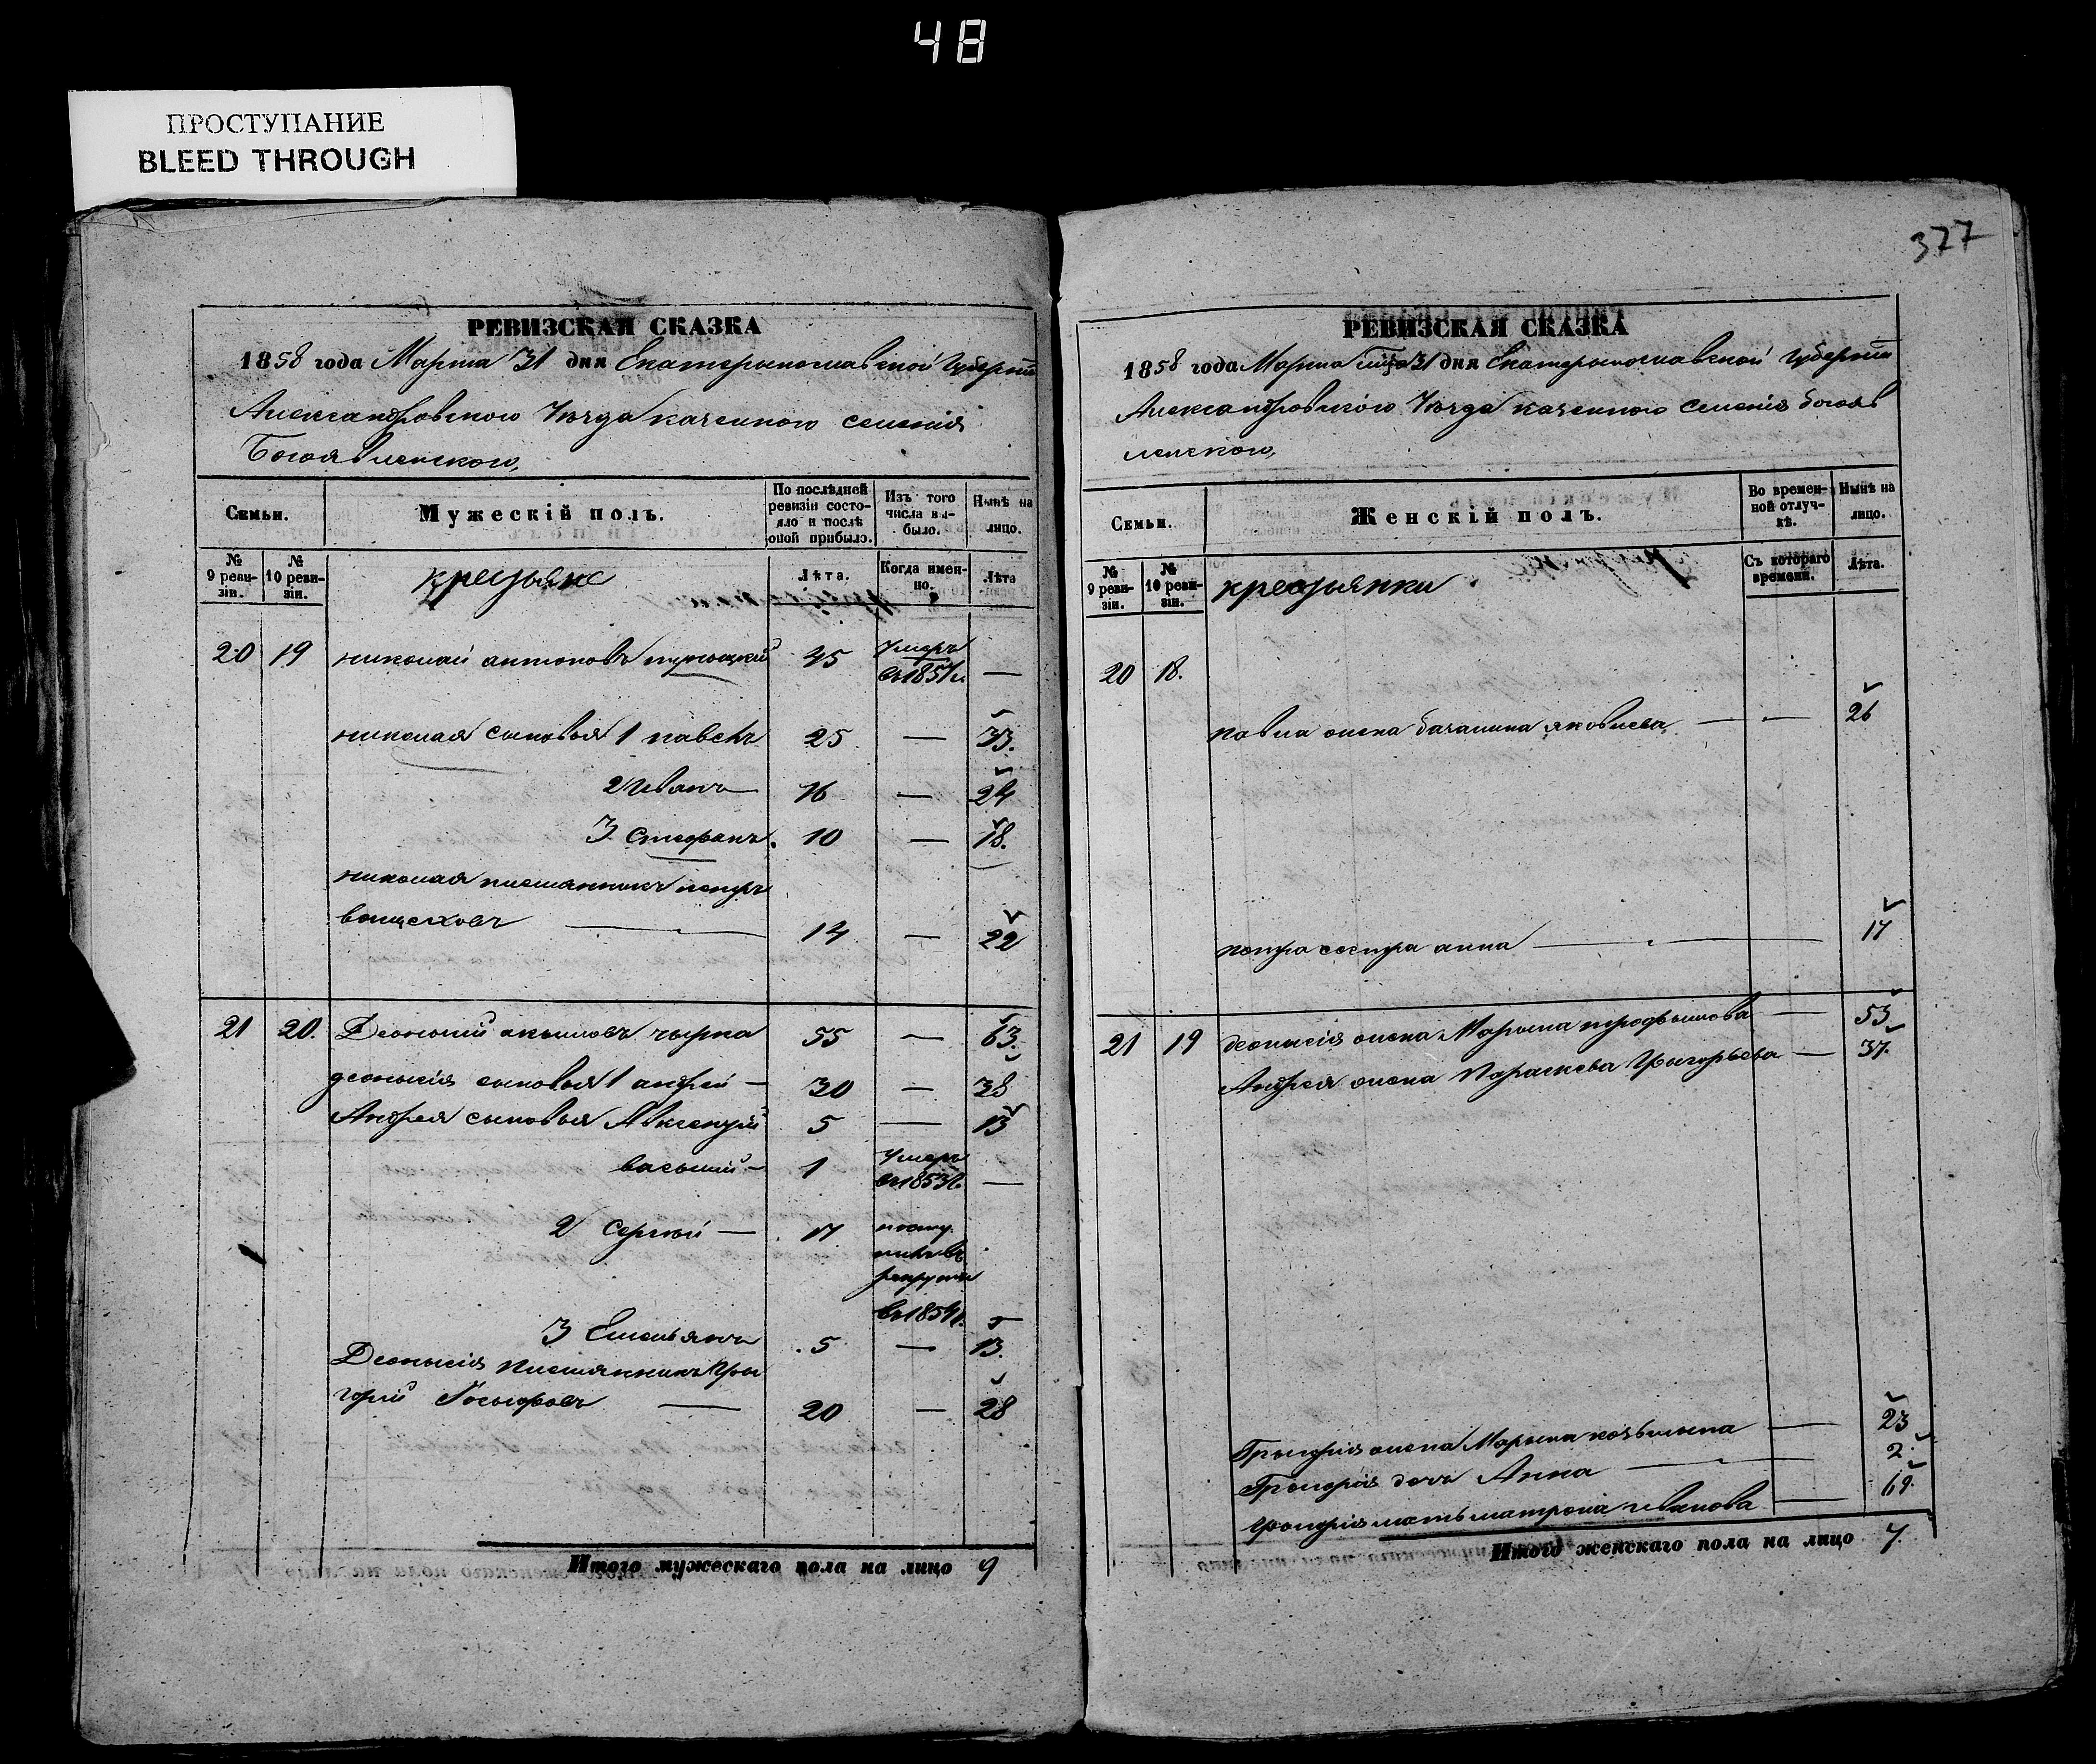 48
ПРОСТУПАНИЕ
BLEED THROUGH
РЕВИЗСКАЯ СКАЗКА
1858 года Марта 31 дня Екатерынославской Губерніи
Александровского Уезда казенного селенія
Богоявленского,
Семьи.
Мужескій полъ.
По послѣдней ревизіи состояло и послѣ оной прибыло.
Изъ того числа выбыло.
Нынѣ на лицо.
№ 9 ревизіи.
№ 10 ревизіи.
крестьяне
Лѣта.
Когда именно.
Лѣта
20 19 николай антоновъ 45 Умеръ въ 1851 г. —
николая сыновья 1 павелъ 25 — 33.
2 Иванъ — 16 — 24
3 Стефанъ. 10 — 18.
николая племянникъ петръ
— 14 — 22
21 20. Деонисий акимовъ чырка 55 — 63.
деонысія сыновья 1 андрей — 30 — 38
Андрея сыновья Авксентій 5 — 13
василий — 1 Умеръ въ 1853 г. —
2 Сергей — 17 поступилъ въ рекруты въ 1854 г.
3 Емельянъ 5 — 13.
Деонысія племянникъ Гры
горий Іосыфовъ — 20 — 28
Итого мужескаго пола на лицо 9
377
РЕВИЗСКАЯ СКАЗКА
1858 года Марта 31 дня Екатерынославской Губерніи
Александровского Уезда казенного селенія богояв
ленского,
Семьи.
Женскій полъ.
Во временной отлучкѣ.
Нынѣ на лицо.
№ 9 ревизіи.
№ 10 ревизіи.
крестьянки
Съ котораго времени.
Лѣта.
20 18.
павла жена яковлева, — — 26
петра сестра анна — 17
21 19 деонисія жена Марына трофымова — 53
Андрея жена Параскева Грыгорьева — 37.
Грыгорія жена Марына козьмына — 23
Грыгорія дочь Анна — 2.
грыгорія мать матрона иванова — 69.
Итого женскаго пола на лицо 7.